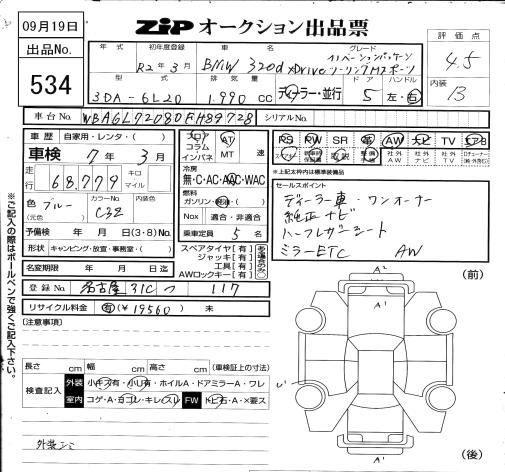 09月19日
出品No.
534
ZIP オークション出品票
年式 初年度登録 車名 グレード
R2年3月 BMW 320d xDrive イノベーションパッケージ
ツーリングMスポーツ
型式 排気量 ドア ハンドル
3DA-6L20 1.990 cc ディーラー・並行 5 左・右
評価点
4.5
内装
B
車台No. WBAGL72080FH89728 シリアルNo.
車歴 自家用・レンタ・( )
車検 7年3月
走行 68,779 キロ マイル
色 ブルー (元色) カラーNo. C32 内装色
予備検 年 月 日(3・8)No.
形状 キャンピング・放宣・事務室・( )
フロア コラム インパネ AT MT 速
冷房
無・C・AC・AAC・WAC
燃料
ガソリン・軽油・( )
Nox 適合・非適合
乗車定員 5 名
スペアタイヤ [有]
ジャッキ [有]
工具 [有]
AWロックキー [有]
ある場合のみ○
PS PW SR 革 AW ナビ TV エアB
取説 社外AW 社外ナビ 社外TV
↑上記太枠内は標準装備品
セールスポイント
ディーラー車・ワンオーナー
純正ナビ
ハーフレザーシート
ミラーETC AW
名変期限 年 月 日迄
登録No. 名古屋 31C つ 117
リサイクル料金 有(¥19560) 未
(注意事項)
長さ cm 幅 cm 高さ cm (車検証上の寸法)
検査記入 外装 小キズ有・小凹有・ホイルA・ドアミラーA・ワレ
室内 コゲ・A・ヨゴレ・キレ・スレ FW トビ石・A・×要ス
外装シミ
※ご記入の際はボールペンで強くご記入下さい。
(前)
A2
A1
A1
A2
(後)